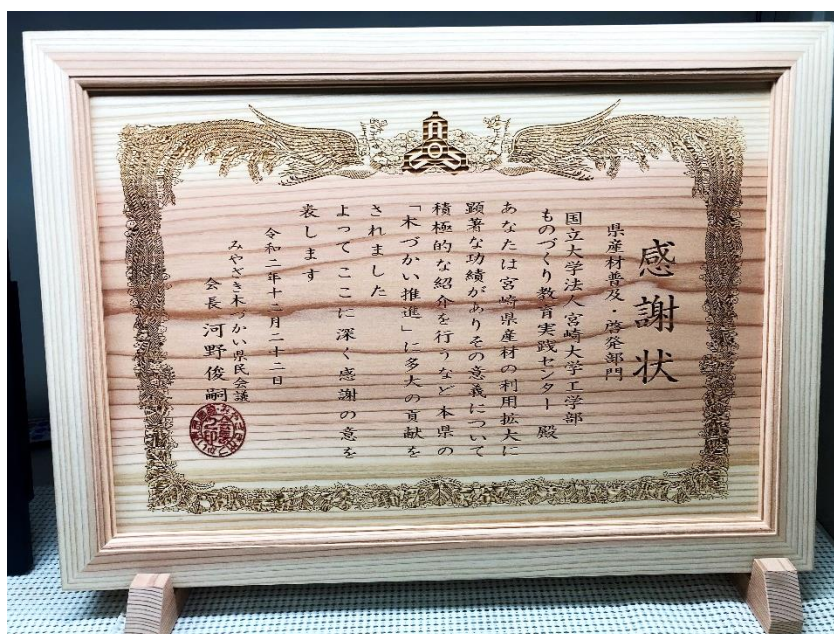 感謝状
県産材普及・啓発部門
国立大学法人宮崎大学工学部
ものづくり教育実践センター 殿
あなたは宮崎県産材の利用拡大に
顕著な功績がありその意義について
積極的な紹介を行うなど本県の
「木づかい推進」に多大の貢献を
されました
よってここに深く感謝の意を
表します
令和二年十二月二十二日
みやざき木づかい県民会議
会長 河野俊嗣